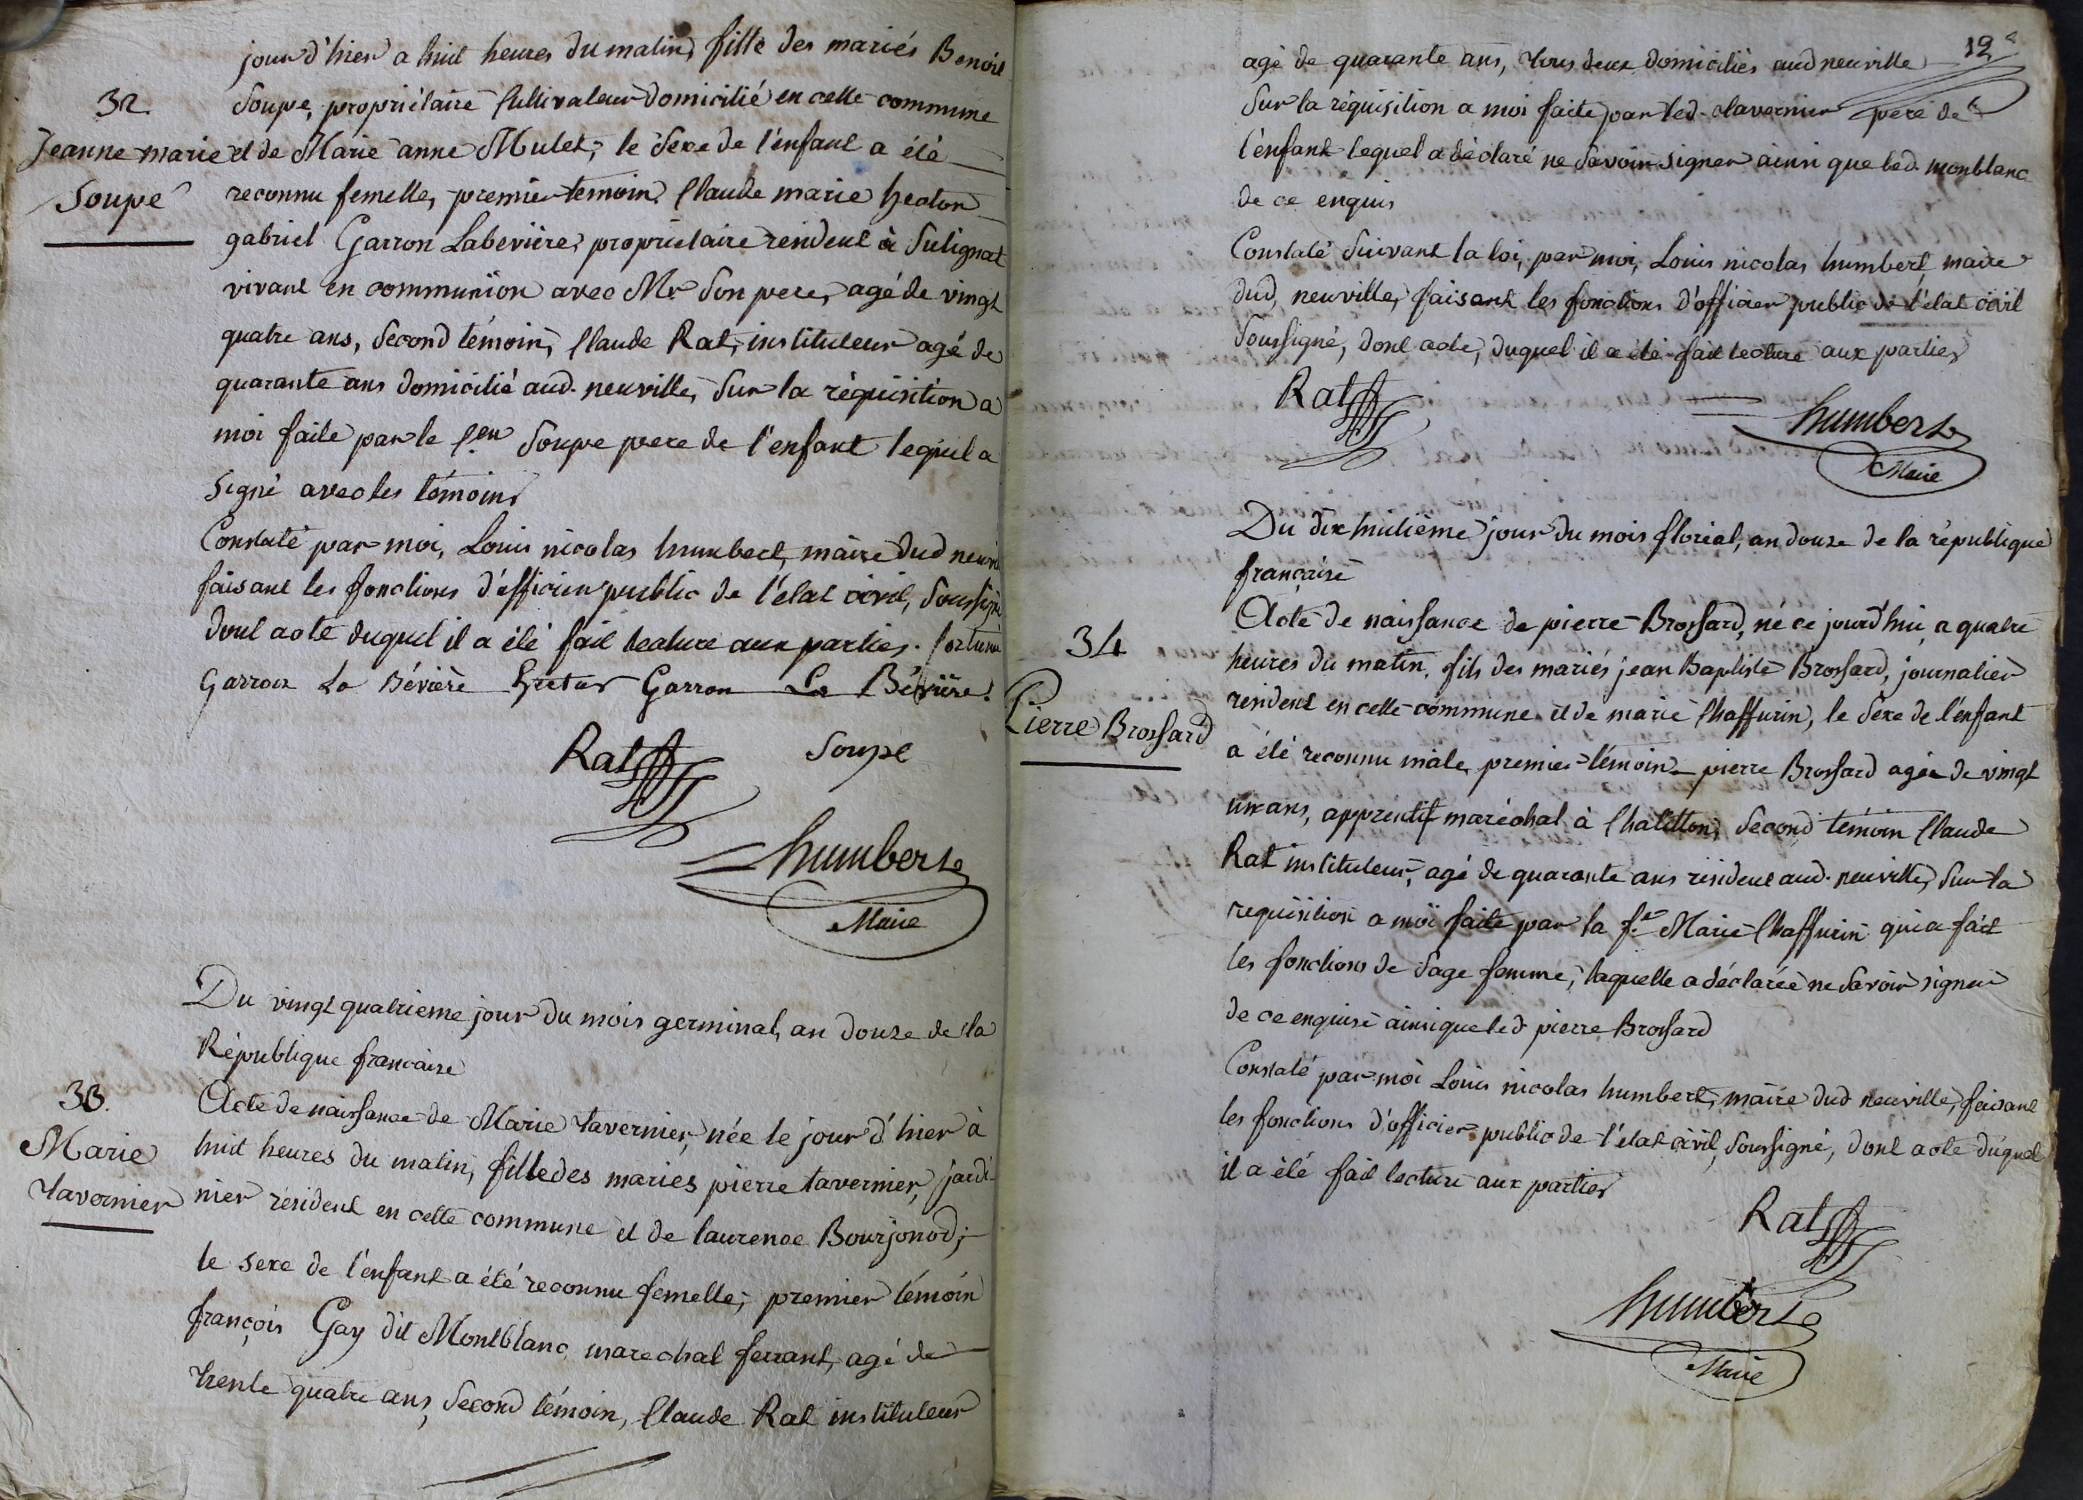 jour d'hier a huit heures du matin, fille des mariés Benoit
32
Soupe, propriétaire Cultivateur domicilié en cette commune
Jeanne marie
et de Marie anne Mulet, le sexe de l'enfant a été
Soupe
reconnu femelle, premier temoin, Claude marie hector
gabriel Garron Labevière, propriétaire résident à Sulignat
vivant en communion avec Mr son pere, agé de vingt
quatre ans, second témoin, Claude Rat, instituteur agé de
quarante ans domicilié aud. neuville, sur la réquisition a
moi faite par le Sr. Soupe pere de l'enfant lequel a
signé avec les témoins
Constaté par moi, Louis nicolas humbert, maire dud neuville
faisant les fonctions d'officier public de l'état civil, soussigné
dont acte duquel il a été fait lecture aux parties. fortuné
Garron La Bévière hector Garron La Bévière.
Rat Soupe
humbert
Maire
Du vingt quatrieme jour du mois germinal, an douze de la
République francaise
33.
Acte de naissance de Marie tavernier, née le jour d'hier à
Marie
huit heures du matin, fille des mariés pierre tavernier, jardi-
tavernier
nier résident en cette commune et de laurence Bourjonod;
le sexe de l'enfant a été reconnu femelle; premier témoin
françois Gay dit Montblanc marechal ferrant, agé de
trente quatre ans, second témoin, Claude Rat instituteur
12
agé de quarante ans, tous deux domiciliés aud neuville
sur la réquisition a moi faite par led. tavernier pere de
l'enfant lequel a déclaré ne savoir signer ainsi que led. monblanc
de ce enquis
Constaté suivant la loi, par moi, Louis nicolas humbert, maire
dud, neuville, faisant les fonctions d'officier public de l'état civil
soussigné, dont acte, duquel il a été fait lecture aux parties
Rat
humbert
Maire
Du dix huitième jour du mois floréal, an douze de la république
française
34
Acte de naissance de pierre Brossard, né ce jourd'hui, a quatre
heures du matin, fils des mariés jean Baptiste Brossard, journalier
Pierre Brossard
résident en cette commune et de marie Chaffurin, le sexe de l'enfant
a été reconnu mâle, premier témoin pierre Brossard agée de vingt
un ans, apprentif maréchal à Chatillon, second témoin Claude
Rat instituteur, agé de quarante ans résident aud. neuville, sur la
requisition a moi faite par la fe. Marie Chaffurin qui a fait
les fonctions de sage femme, laquelle a déclarée ne savoir signer
de ce enquise ainsi que led pierre Brossard
Constaté par moi Louis nicolas humbert, maire dud neuville, faisant
les fonctions d'officier public de l'état civil, soussigné, dont acte duquel
il a été fait lecture aux parties
Rat
humbert
Maire